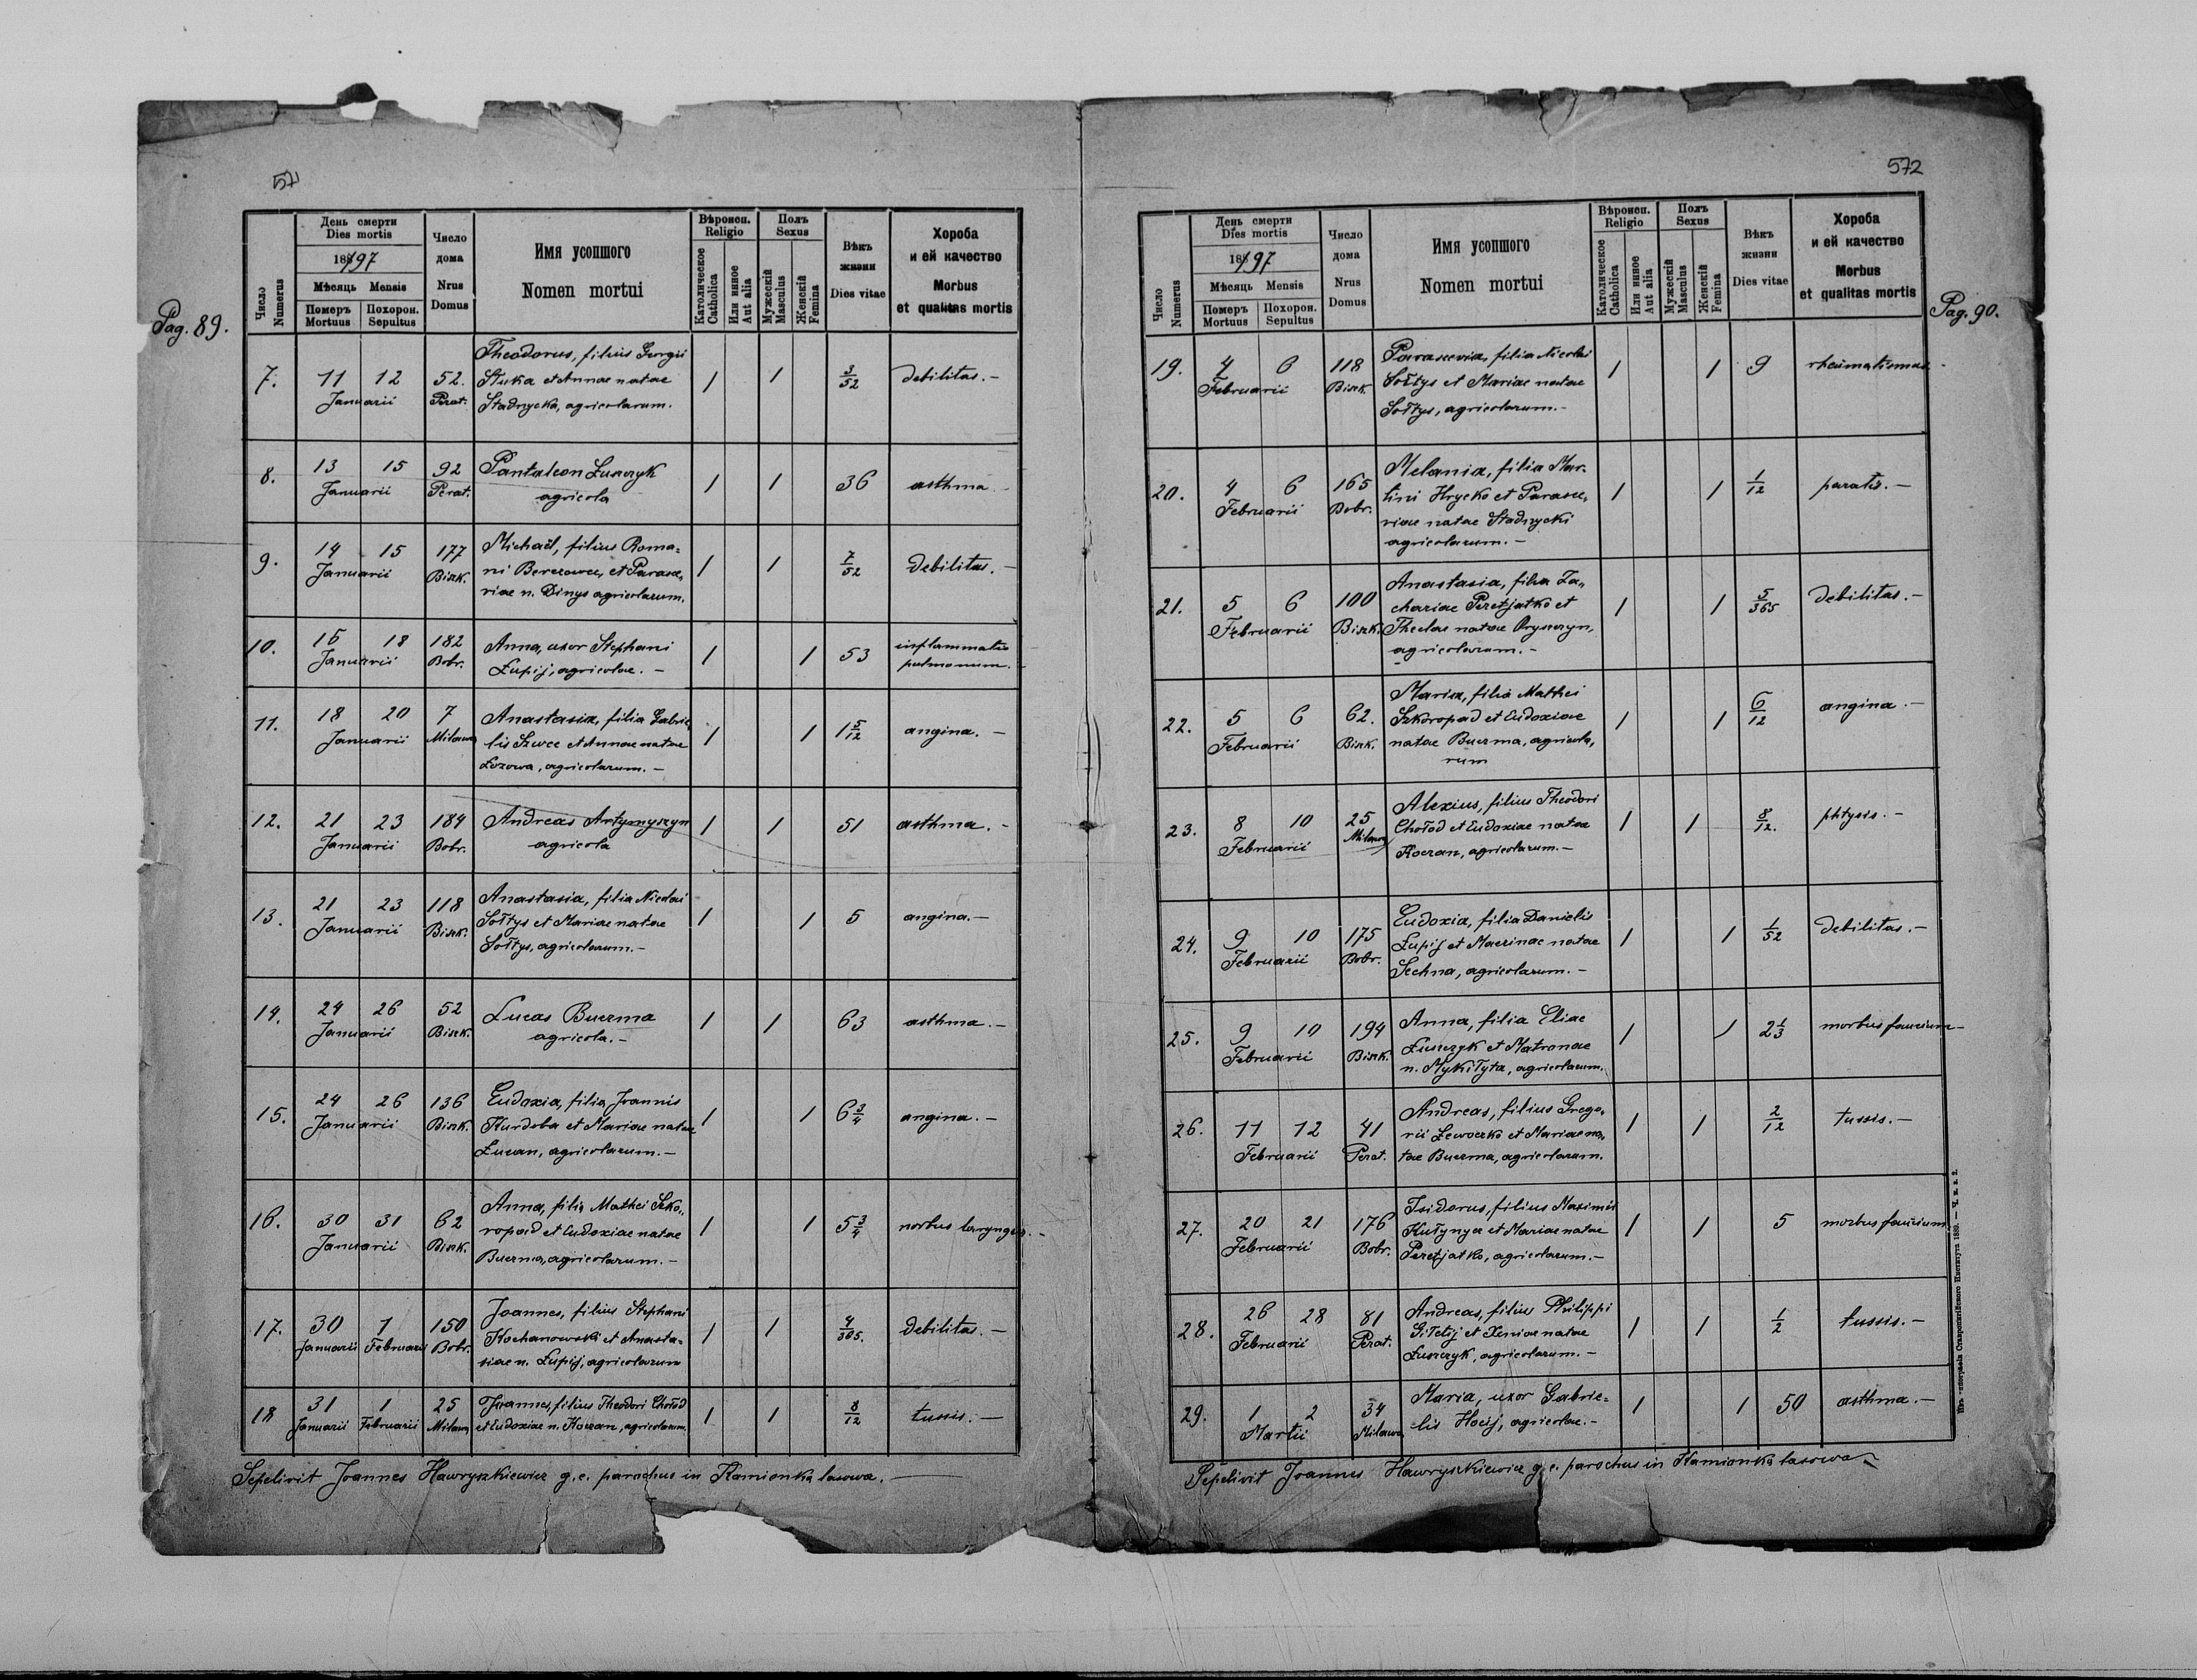 571
Pag. 89.
День смерти
Dies mortis
1897
Мѣсяць Mensis
Число
Numerus
Померъ
Mortuus
Похорон.
Sepultus
Число
дома
Nrus
Domus
Имя усопшого
Nomen mortui
Вѣроисп.
Religio
Католическое
Catholica
Или инное
Aut alia
Полъ
Sexus
Мужескій
Masculus
Женскій
Femina
Вѣкъ
жизни
Dies vitae
Хороба
и ей качество
Morbus
et qualitas mortis
7. 11 12 Januarii 52. Perat.
Theodorus, filius Georgii
Stuka et Annae natae
Stadnycka, agricolarum.
1 1 3/52 debilitas. –
8. 13 15 Januarii 92 Perat.
Pantaleon Łuszczyk
agricola
1 1 36 asthma –
9. 14 15 Januarii 177 Bisk.
Michaël, filius Roma=
ni Berezowec, et Parasce„
viae n. Dinys agricolarum.
1 1 7/52 debilitas. –
10. 15 18 Januarii 182 Bobr.
Anna, uxor Stephani
Łupij, agricolae. –
1 1 53 inflammatio
pulmonum. –
11. 18 20 Januarii 7 Milawa
Anastasia, filia Gabrie„
lis Szwec et Annae natae
Łozowa, agricolarum. –
1 1 1 5/12 angina. –
12. 21 23 Januarii 184 Bobr.
Andreas Artymyszyn
agricola
1 1 51 asthma. –
13. 21 23 Januarii 118 Bisk.
Anastasia, filia Nicolai
Sołtys et Mariae natae
Sołtys, agricolarum. –
1 1 5 angina. –
14. 24 26 Januarii 52 Bisk.
Lucas Buczma
agricola. –
1 1 63 asthma. –
15. 24 26 Januarii 136 Bisk.
Eudoxia, filia Joannis
Kurdoba et Mariae natae
Łucan, agricolarum. –
1 1 6 3/4 angina. –
16. 30 31 Januarii 62 Bisk.
Anna, filia Mathei Szko„
ropad et Eudoxiae natae
Buczma, agricolarum. –
1 1 5 3/4 morbus laryngis. –
17. 30 Januarii 1 Februarii 150 Bobr.
Joannes, filius Stephani
Kochanowski et Anasta=
siae n. Łupij, agricolarum
1 1 4/365. debilitas. –
18 31 Januarii 1 Februarii 25 Milawa
Joannes, filius Theodori Chołod
et Eudoxiae n. Koczan, agricolarum.
1 1 8/12 tussis. –
Sepelivit Joannes Hawryszkiewicz g. c. parochus in Kamionka lasowa. –
572
Pag. 90.
День смерти
Dies mortis
1897
Мѣсяць Mensis
Число
Numerus
Померъ
Mortuus
Похорон.
Sepultus
Число
дома
Nrus
Domus
Имя усопшого
Nomen mortui
Вѣроисп.
Religio
Католическое
Catholica
Или инное
Aut alia
Полъ
Sexus
Мужескій
Masculus
Женскій
Femina
Вѣкъ
жизни
Dies vitae
Хороба
и ей качество
Morbus
et qualitas mortis
19. 4 6 Februarii 118 Bisk.
Parascevia, filia Nicolai
Sołtys et Mariae natae
Sołtys, agricolarum. –
1 1 9 rheumatismus –
20. 4 6 Februarii 165 Bobr.
Melania, filia Mar-
tini Hrycko et Parasce„
viae natae Stadnycki
agricolarum. –
1 1 1/12 paratis. –
21. 5 6 Februarii 100 Bisk.
Anastasia, filia Za„
chariae Peretjatko et
Theclae natae Pryszczyn,
agricolarum. –
1 1 5/365 debilitas. –
22. 5 6 Februarii 62. Bisk.
Maria, filia Mathei
Szkoropad et Eudoxiae
natae Buczma, agricola„
rum
1 1 6/12 angina. –
23. 8 10 Februarii 25 Milawa
Alexius, filius Theodori
Chołod et Eudoxiae natae
Koczan, agricolarum. –
1 1 8/12. phtysis. –
24. 9 10 Februarii 175 Bobr.
Eudoxia, filia Danielis
Łupij et Macrinae natae
Sechna, agricolarum. –
1 1 1/52 debilitas. –
25. 9 10 Februarii 194 Bisk.
Anna, filia Eliae
Łuszczyk et Matronae
n. Mykiłyta, agricolarum.
1 1 2 1/3 morbus faucium –
26. 11 12 Februarii 41 Perat.
Andreas, filius Grego„
rii Lewoczko et Mariae na„
tae Buczma, agricolarum.
1 1 2/12 tussis. –
27. 20 21 Februarii 176 Bobr.
Isidorus, filius Maximi
Kułynycz et Mariae natae
Peretjatko, agricolarum. –
1 1 5 morbus faucium
28. 26 28 Februarii 81 Perat.
Andreas, filius Philippi
Giłetij et Xeniae natae
Łuszczyk, agricolarum. –
1 1 1/2 tussis. –
29. 1 2 Martii 34 Milawa
Maria, uxor Gabrie=
lis Hocij, agricolae. –
1 1 50 asthma. –
Sepelivit Joannes Hawryszkiewicz g. c. parochus in Kamionka lasowa
Изъ типографіи Ставропигійского Института 1889. – Ч. н. з. 2.